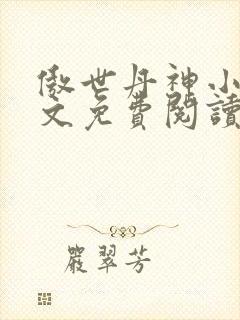 傲世丹神小
文免費閱讀
嚴翠芳